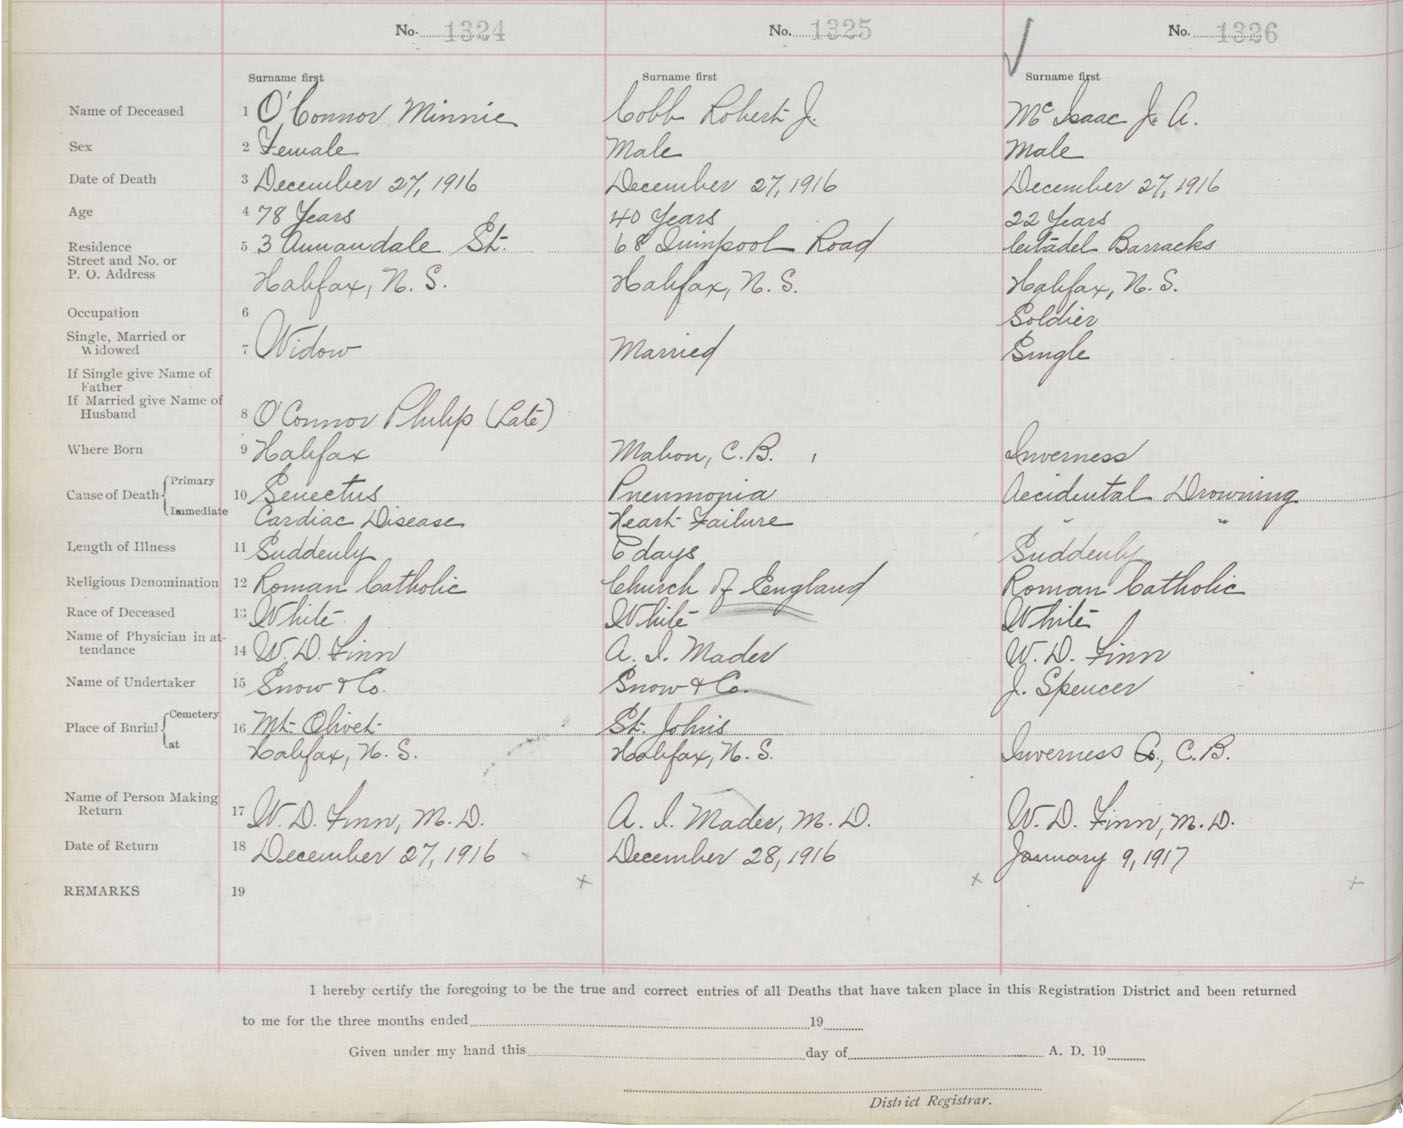 No. 1324 No. 1325 No. 1326
Surname first Surname first Surname first
Name of Deceased 1 O'Connor Minnie Cobb Robert J. McIsaac J. A.
Sex 2 Female Male Male
Date of Death 3 December 27, 1916 December 27, 1916 December 27, 1916
Age 4 78 Years 40 Years 22 Years
Residence 5 3 Annandale St. 68 Quinpool Road Citadel Barracks
Street and No. or
P. O. Address Halifax, N. S. Halifax, N. S. Halifax, N. S.
Occupation 6 Soldier
Single, Married or
Widowed 7 Widow Married Single
If Single give Name of
Father
If Married give Name of
Husband 8 O'Connor Philip (Late)
Where Born 9 Halifax Mabou, C. B. Inverness
Cause of Death Primary 10 Senectus Pneumonia Accidental Drowning
Immediate Cardiac Disease Heart Failure " "
Length of Illness 11 Suddenly 6 days Suddenly
Religious Denomination 12 Roman Catholic Church of England Roman Catholic
Race of Deceased 13 White White White
Name of Physician in at-
tendance 14 W. D. Finn A. I. Mader W. D. Finn
Name of Undertaker 15 Snow & Co. Snow & Co. J. Spencer
Place of Burial Cemetery 16 Mt. Olivet St. Johns
at Halifax, N. S. Halifax, N. S. Inverness Co., C. B.
Name of Person Making
Return 17 W. D. Finn, M. D. A. I. Mader, M. D. W. D. Finn, M. D.
Date of Return 18 December 27, 1916 December 28, 1916 January 9, 1917
REMARKS 19
I hereby certify the foregoing to be the true and correct entries of all Deaths that have taken place in this Registration District and been returned
to me for the three months ended 19
Given under my hand this day of A. D. 19
District Registrar.